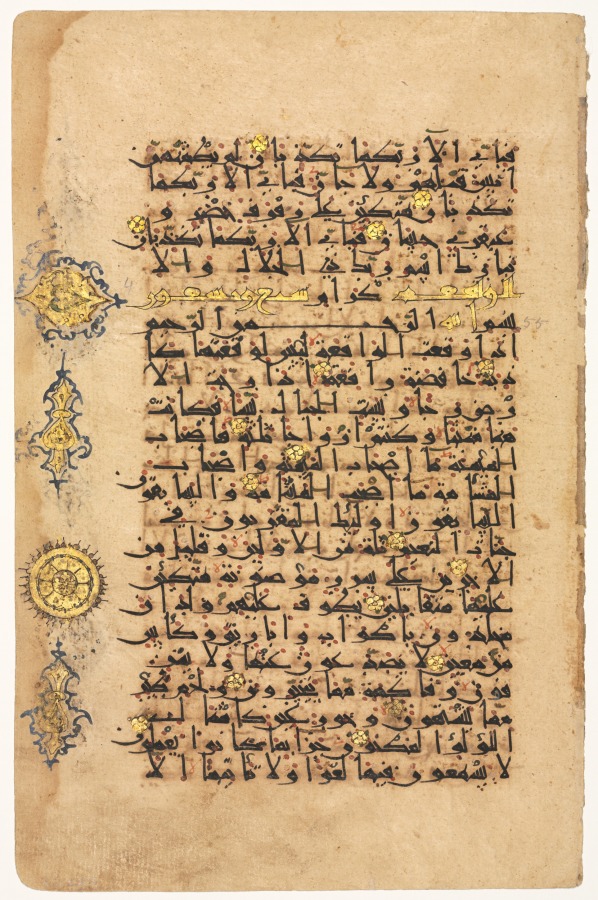 فبأي آلاء ربكما تكذبان لم يطمثهن
إنس قبلهم ولا جان فبأي آلاء ربكما
تكذبان متكئين على رفرف خضر و
عبقري حسان فبأي آلاء ربكما تكذبان
تبارك اسم ربك ذي الجلال والإ
الواقعة كرام سبع وتسعون
بسم الله الرحمن الرحيم
إذا وقعت الواقعة ليس لوقعتها كا
ذبة خافضة رافعة إذا رجت الأ
رض رجا وبست الجبال بسا فكانت
هباء منبثا وكنتم أزواجا ثلاثة فأصحاب
الميمنة ما أصحاب الميمنة وأصحاب
المشأمة ما أصحاب المشأمة والسابقون
السابقون أولئك المقربون في
جنات النعيم ثلة من الأولين وقليل من
الآخرين على سرر موضونة متكئين
عليها متقابلين يطوف عليهم ولدان
مخلدون بأكواب وأباريق وكأس
من معين لا يصدعون عنها ولا ينز
فون وفاكهة مما يتخيرون ولحم طير
مما يشتهون وحور عين كأمثال
اللؤلؤ المكنون جزاء بما كانوا يعملون
لا يسمعون فيها لغوا ولا تأثيما إلا